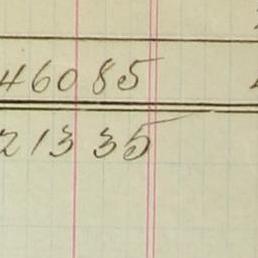 46085
21335